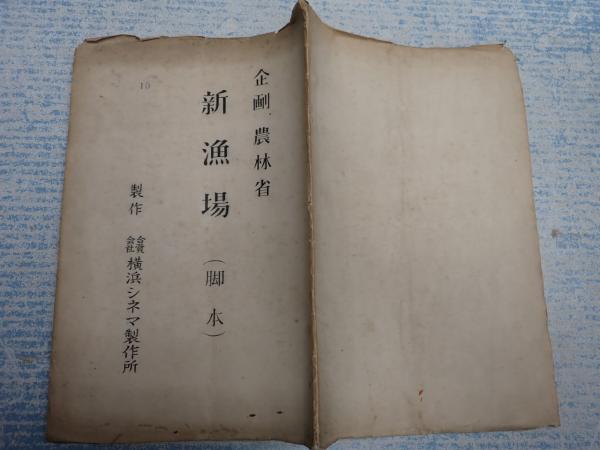 企劃、農林省
新漁場（脚本）
製作 合資会社 横浜シネマ製作所
10